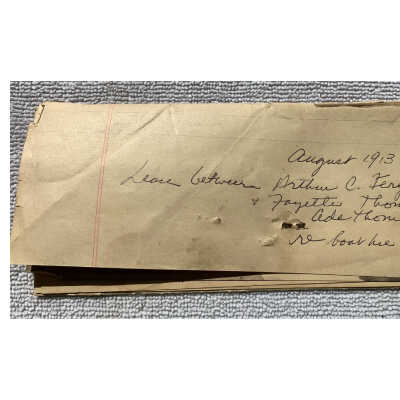 August 1913
Lease between Arthur C. Ferg
& Fayette Thom
Ada Thom
re boat hie